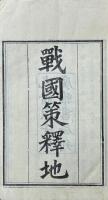 戰國策釋地